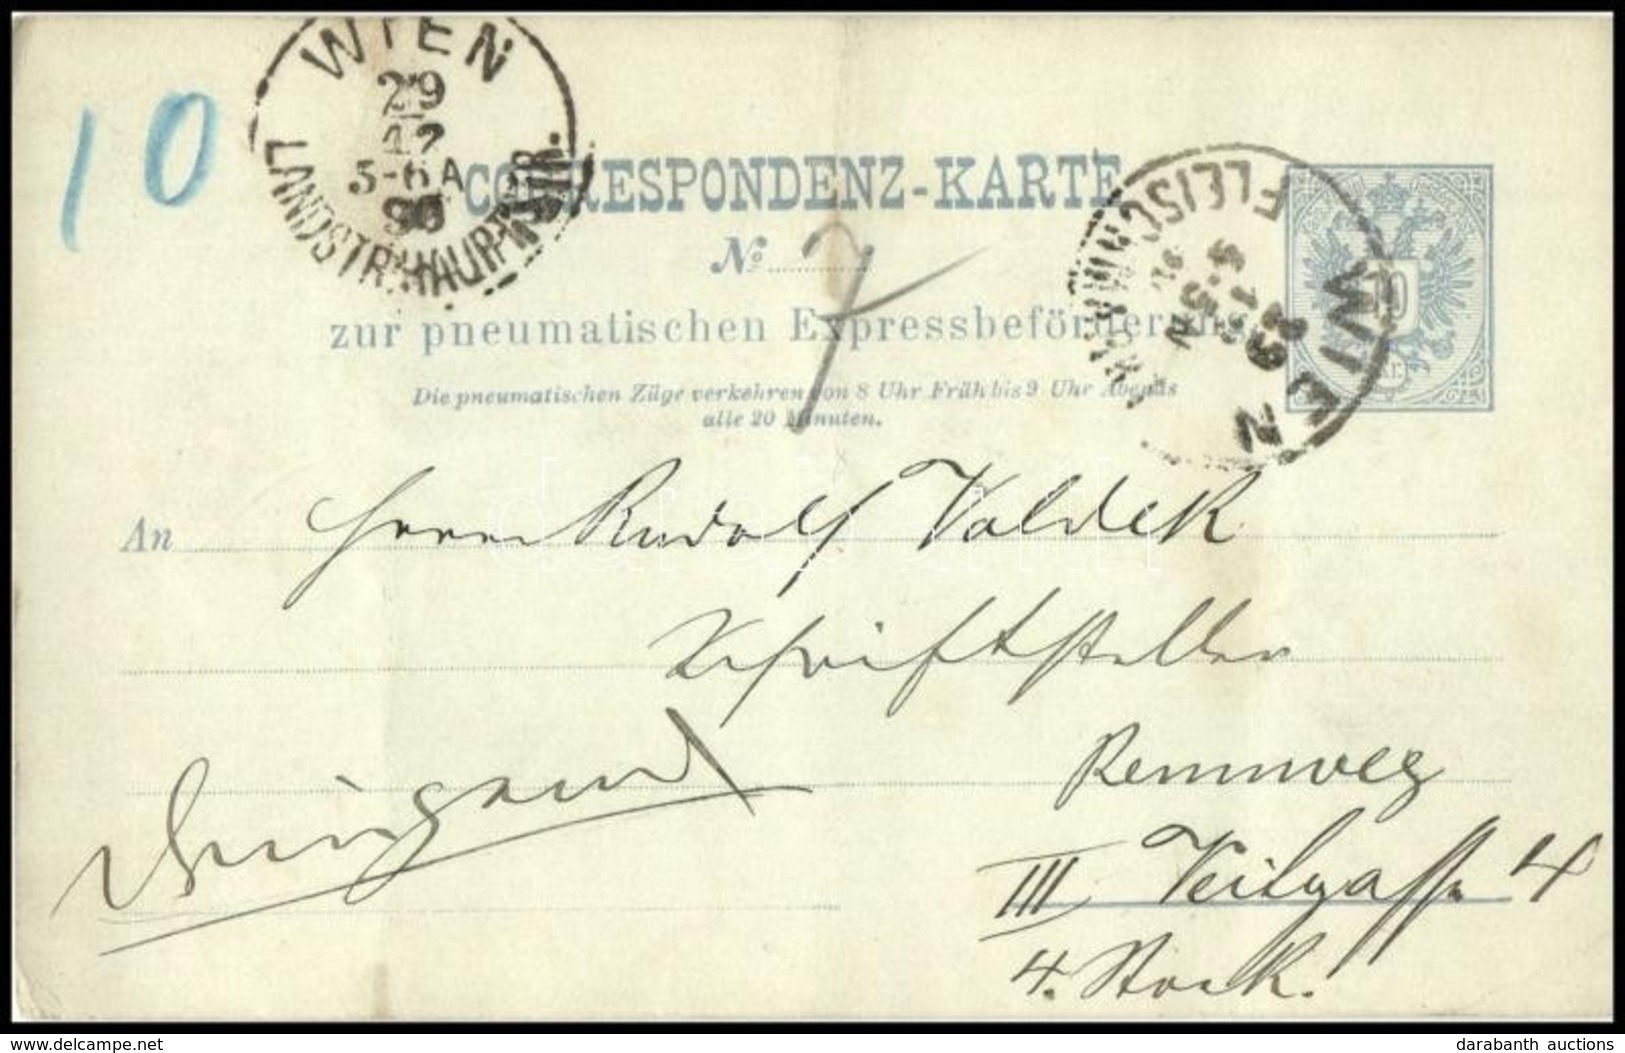 WIEN
29
12
5-6A
90
LANDSTR.HAUPTSTR.
10
CORRESPONDENZ-KARTE
No 7
zur pneumatischen Expressbeförderung
Die pneumatischen Züge verkehren von 8 Uhr Früh bis 9 Uhr Abends
alle 20 Minuten.
WIEN
29
12
FLEISCHMARKT
10
KR.
An Herrn Rudolf Valdek
Schriftsteller
Dringend
Rennweg
III Veitgasse 4
4. Stock.
darabanth
delcampe.net
darabanth auctions